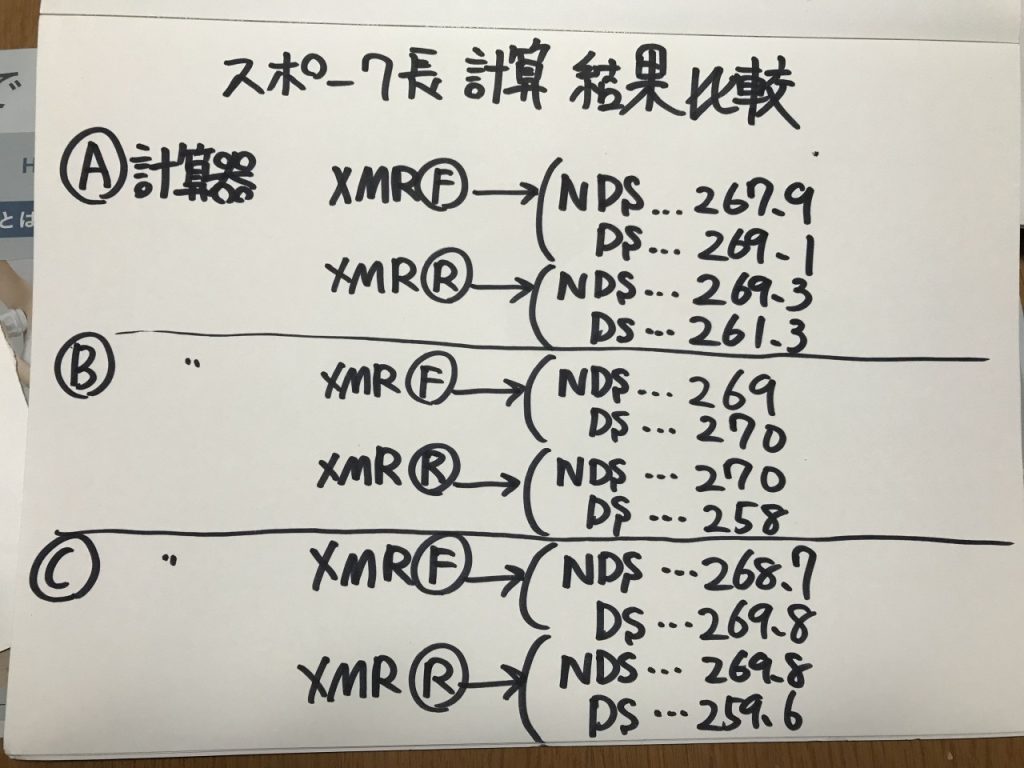 スポーク長 計算 結果 比較
Ⓐ 計算器 XMRⒻ→(NDS...267.9
DS...269.1
XMRⓇ→(NDS...269.3
DS...261.3
Ⓑ 〃 XMRⒻ→(NDS...269
DS...270
XMRⓇ→(NDS...270
DS...258
Ⓒ 〃 XMRⒻ→(NDS...268.7
DS...269.8
XMRⓇ→(NDS...269.8
DS...259.6
で
H
とは